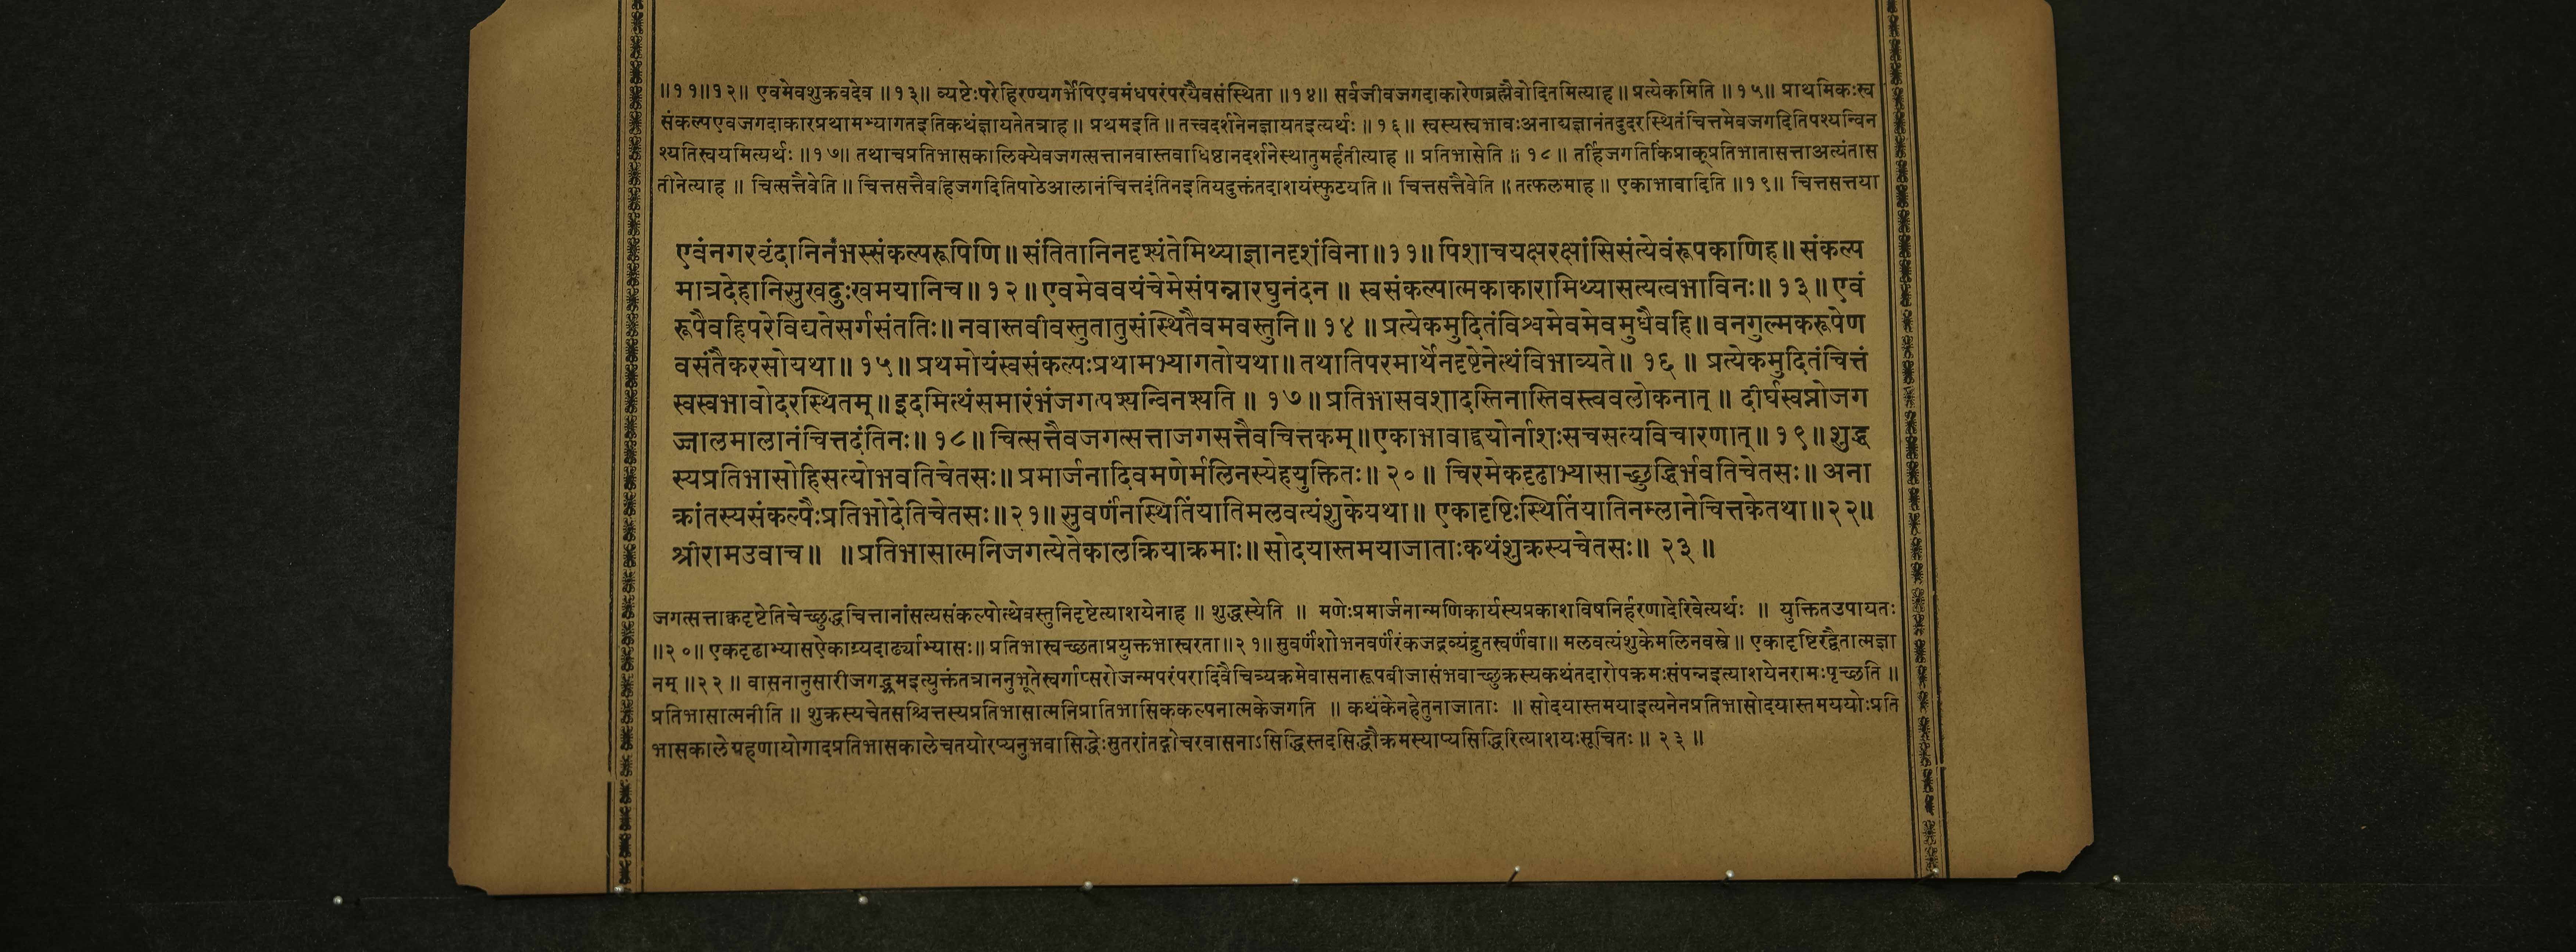 ॥११॥१२॥ एवमेवशुक्रवदेव ॥१३॥ व्यष्टेःपरेहिरण्यगर्भेपिएवमंधपरंपरयैवसंस्थिता ॥१४॥ सर्वजीवजगदाकारेणब्रह्मैवोदितमित्याह ॥ प्रत्येकमिति ॥१५॥ प्राथमिकःस्व
संकल्पएवजगदाकारप्रथामभ्यागतइतिकथंज्ञायतेतत्राह ॥ प्रथमइति ॥ तत्त्वदर्शनेनज्ञायतइत्यर्थः ॥१६॥ स्वस्यस्वभावःअनाद्यज्ञानंतदुदरस्थितंचित्तमेवजगदितिपश्यन्विन
श्यतिस्वयमित्यर्थः ॥१७॥ तथाचप्रतिभासकालिक्येवजगत्सत्तानवास्तवाधिष्ठानदर्शनेस्थातुमर्हतीत्याह ॥ प्रतिभासेति ॥ १८॥ तर्हिजगतिकिंप्राक्प्रतिभातासत्ताअत्यंतास
तीनेत्याह ॥ चित्सत्तैवेति ॥ चित्तसत्तैवहिजगदितिपाठेआलानंचित्तदंतिनइतियदुक्तंतदाशयंस्फुटयति ॥ चित्तसत्तैवेति ॥ तत्फलमाह ॥ एकाभावादिति ॥१९॥ चित्तसत्तया
एवंनगरवृंदानिनंभस्संकल्परूपिणि ॥ संतितानिनदृश्यंतेमिथ्याज्ञानदृशंविना ॥११॥ पिशाचयक्षरक्षांसिसंत्येवंरूपकाणिह ॥ संकल्प
मात्रदेहानिसुखदुःखमयानिच ॥ १२ ॥ एवमेववयंचेमेसंपन्नारघुनंदन ॥ स्वसंकल्पात्मकाकारामिथ्यासत्यत्वभाविनः ॥ १३ ॥ एवं
रूपैवहिपरेविद्यतेसर्गसंततिः ॥ नवास्तवीवस्तुतातुसंस्थितैवमवस्तुनि ॥ १४ ॥ प्रत्येकमुदितंविश्वमेवमेवमुधैवहि ॥ वनगुल्मकरूपेण
वसंतैकरसोयथा ॥ १५ ॥ प्रथमोयंस्वसंकल्पःप्रथामभ्यागतोयथा ॥ तथातिपरमार्थेनदृष्टेनेत्थंविभाव्यते ॥ १६ ॥ प्रत्येकमुदितंचित्तं
स्वस्वभावोदरस्थितम् ॥ इदमित्थंसमारंभंजगत्पश्यन्विनश्यति ॥ १७ ॥ प्रतिभासवशादस्तिनास्तिवस्त्ववलोकनात् ॥ दीर्घस्वप्नोजग
ज्जालमालानंचित्तदंतिनः ॥ १८ ॥ चित्सत्तैवजगत्सत्ताजगसत्तैवचित्तकम् ॥ एकाभावाद्द्वयोर्नाशःसचसत्यविचारणात् ॥ १९ ॥ शुद्ध
स्यप्रतिभासोहिसत्योभवतिचेतसः ॥ प्रमार्जनादिवमणेर्मलिनस्येहयुक्तितः ॥ २० ॥ चिरमेकदृढाभ्यासाच्छुद्धिर्भवतिचेतसः ॥ अना
क्रांतस्यसंकल्पैःप्रतिभोदेतिचेतसः ॥२१॥ सुवर्णंनस्थितिंयातिमलवत्यंशुकेयथा ॥ एकादृष्टिःस्थितिंयातिनम्लानेचित्तकेतथा ॥२२॥
श्रीरामउवाच ॥ ॥ प्रतिभासात्मनिजगत्येतेकालक्रियाक्रमाः ॥ सोदयास्तमयाजाताःकथंशुक्रस्यचेतसः ॥ २३ ॥
जगत्सत्ताक्वदृष्टेतिचेच्छुद्धचित्तानांसत्यसंकल्पोत्थेवस्तुनिदृष्टेत्याशयेनाह ॥ शुद्धस्येति ॥ मणेःप्रमार्जनान्मणिकार्यस्यप्रकाशविषनिर्हरणादेरिवेत्यर्थः ॥ युक्तितउपायतः
॥२०॥ एकदृढाभ्यासऐकाग्र्यदार्ढ्याभ्यासः ॥ प्रतिभास्वच्छताप्रयुक्तभास्वरता ॥२१॥ सुवर्णंशोभनवर्णंरंकजद्रव्यंद्रुतस्वर्णंवा ॥ मलवत्यंशुकेमलिनवस्त्रे ॥ एकादृष्टिरद्वैतात्मज्ञा
नम् ॥२२॥ वासनानुसारीजगद्भ्रमइत्युक्तंतत्राननुभूतेस्वर्गाप्सरोजन्मपरंपरादिवैचित्र्यक्रमेवासनारूपबीजासंभवाच्छुक्रस्यकथंतदारोपक्रमःसंपन्नइत्याशयेनरामःपृच्छति ॥
प्रतिभासात्मनीति ॥ शुक्रस्यचेतसश्चित्तस्यप्रतिभासात्मनिप्रातिभासिककल्पनात्मकेजगति ॥ कथंकेनहेतुनाजाताः ॥ सोदयास्तमयाइत्यनेनप्रतिभासोदयास्तमययोःप्रति
भासकालेग्रहणायोगादप्रतिभासकालेचतयोरप्यनुभवासिद्धेःसुतरांतद्गोचरवासनाऽसिद्धिस्तदसिद्धौक्रमस्याप्यसिद्धिरित्याशयःसूचितः ॥ २३ ॥